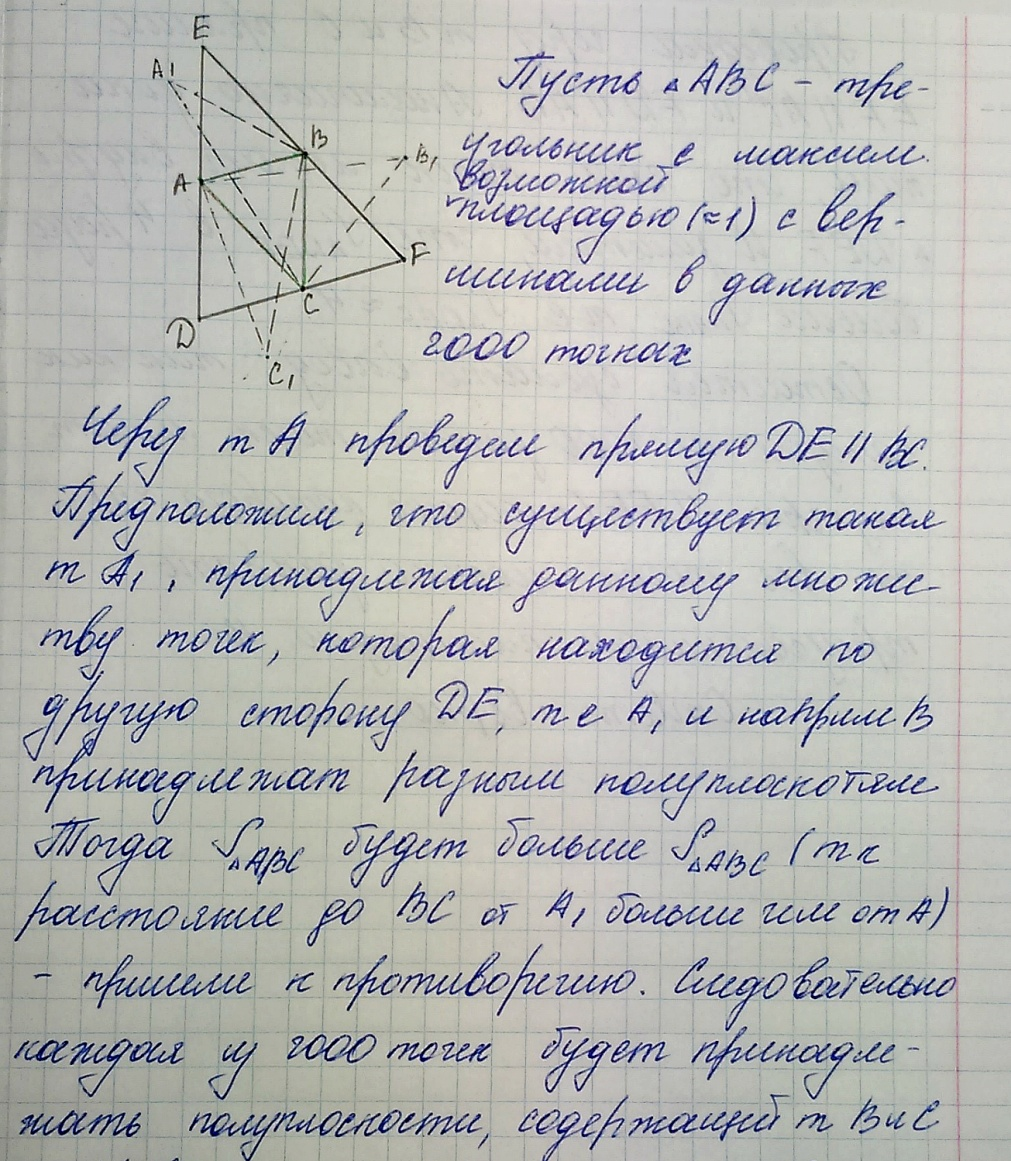 E
A1
B
B1
A
F
C
D
C1
Пусть △ABC – тре-
угольник с максим.
возможной
площадью (≈1) с вер-
шинами в данных
2000 точках
Через т A проведем прямую DE || BC.
Предположим, что существует такая
т A1, принадлежая данному множе-
тву точек, которая находится по
другую сторону DE, т е A1 и наприм B
принадлежат разным полуплоскостям
Тогда S△ABC будет больше S△ABC (т к
расстояние до BC от A1 больше чем от A)
– пришли к противоречию. Следовательно
каждая из 2000 точек будет принадле-
жать полуплоскости, содержащей т B и C